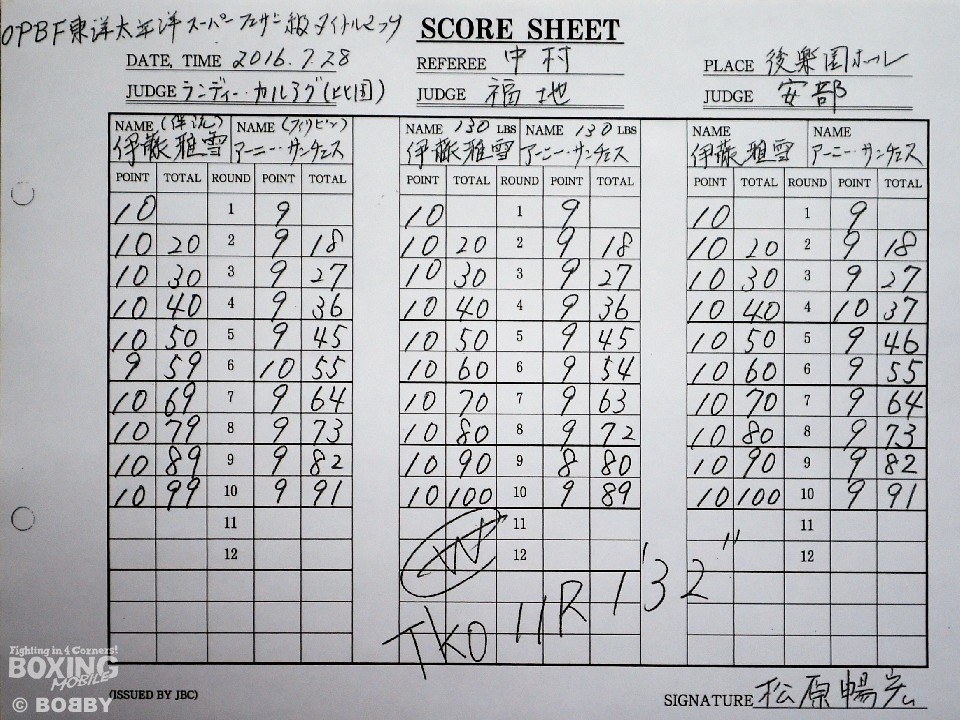 OPBF東洋太平洋スーパーフェザー級タイトルマッチ SCORE SHEET
DATE, TIME 2016.7.28 REFEREE 中村 PLACE 後楽園ホール
JUDGE ランディー・カルログ(比国) JUDGE 福地 JUDGE 安部
NAME (伴流) NAME (フィリピン) NAME 130 LBS NAME 130 LBS NAME NAME
伊藤雅雪 アーニー・サンチェス 伊藤雅雪 アーニー・サンチェス 伊藤雅雪 アーニー・サンチェス
POINT TOTAL ROUND POINT TOTAL POINT TOTAL ROUND POINT TOTAL POINT TOTAL ROUND POINT TOTAL
10 1 9 10 1 9 10 1 9
10 20 2 9 18 10 20 2 9 18 10 20 2 9 18
10 30 3 9 27 10 30 3 9 27 10 30 3 9 27
10 40 4 9 36 10 40 4 9 36 10 40 4 10 37
10 50 5 9 45 10 50 5 9 45 10 50 5 9 46
9 59 6 10 55 10 60 6 9 54 10 60 6 9 55
10 69 7 9 64 10 70 7 9 63 10 70 7 9 64
10 79 8 9 73 10 80 8 9 72 10 80 8 9 73
10 89 9 9 82 10 90 9 8 80 10 90 9 9 82
10 99 10 9 91 10 100 10 9 89 10 100 10 9 91
11 11 11
12 W 12 12
TKO 11R 1'32"
Fighting in 4 Corners!
BOXING
MOBILE
© BOBBY
(ISSUED BY JBC) SIGNATURE 松原暢宏